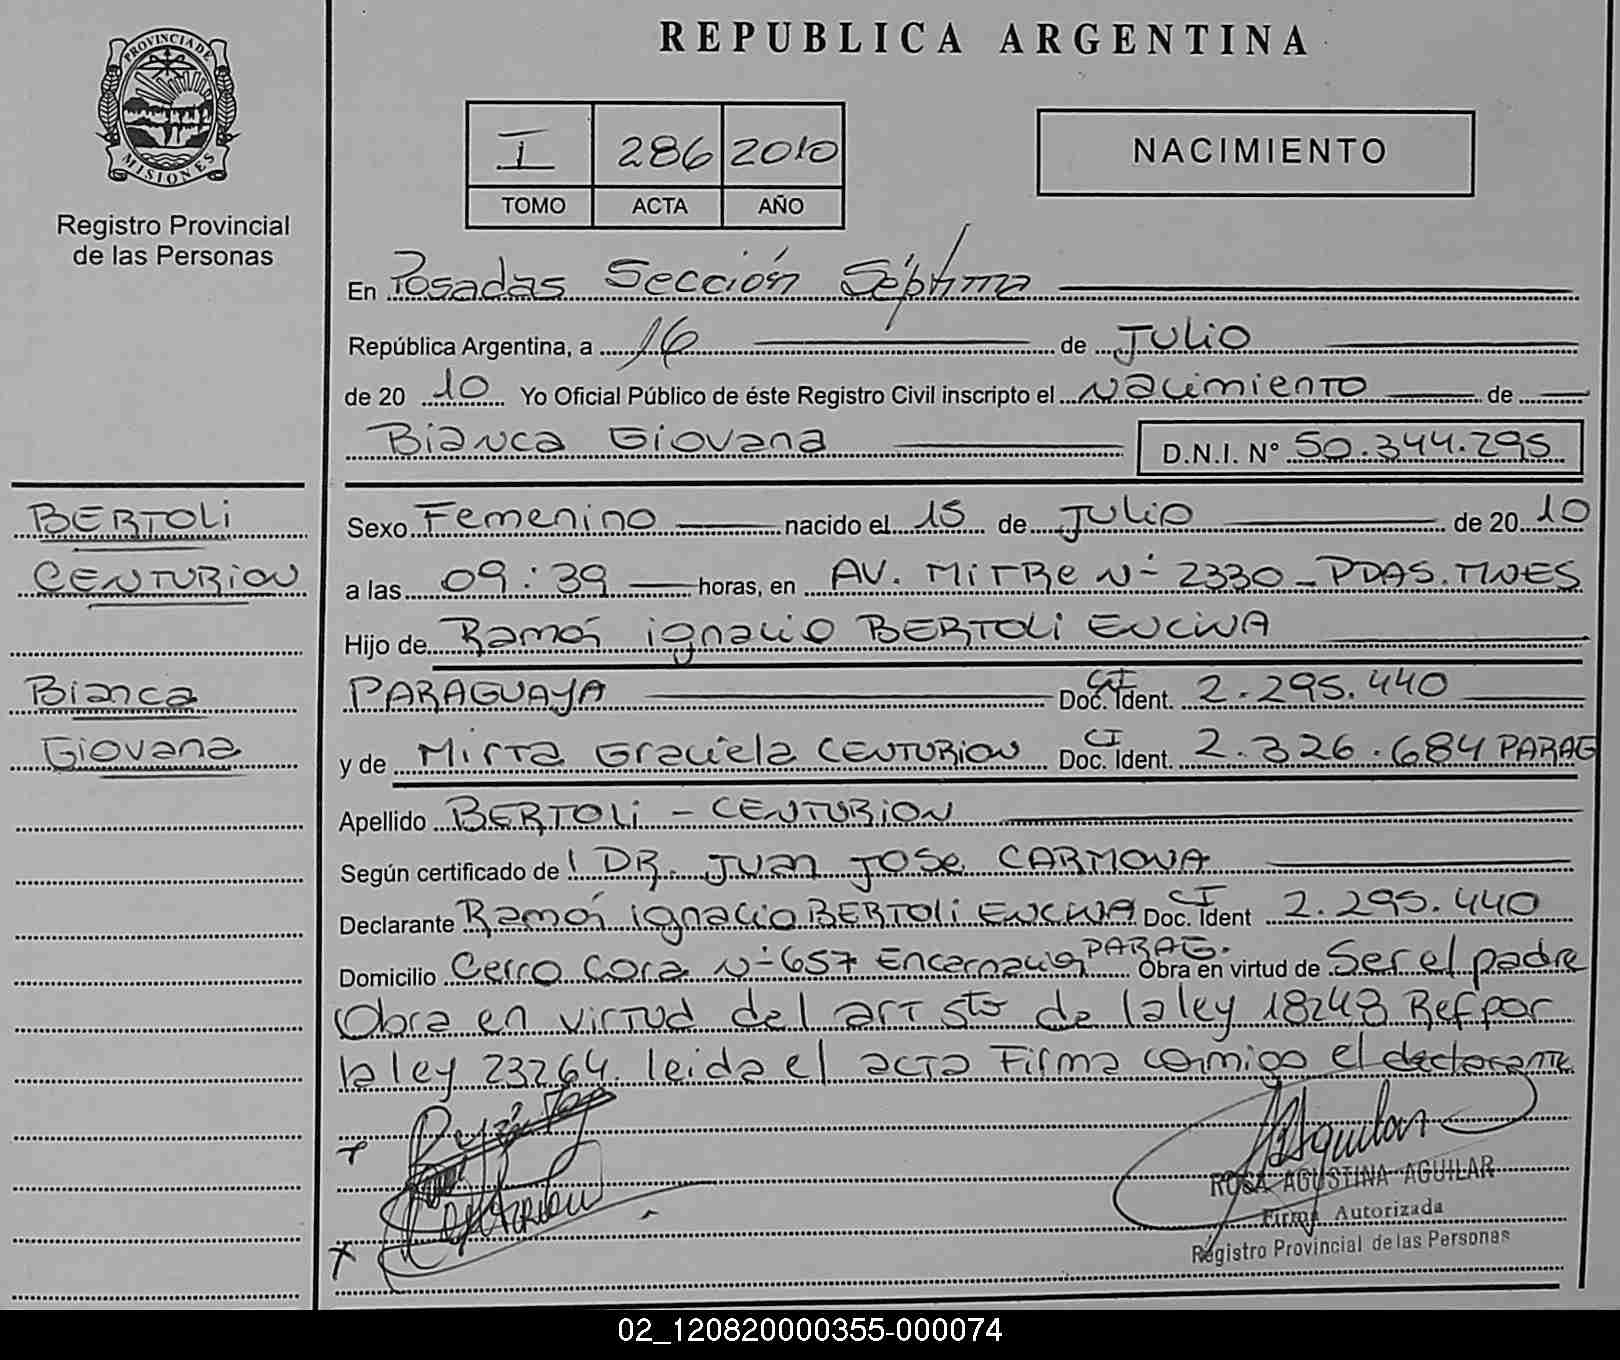 REPUBLICA ARGENTINA
PROVINCIA DE
MISIONES
Registro Provincial
de las Personas
I 286 2010
TOMO ACTA AÑO
NACIMIENTO
En Posadas Sección Séptima
República Argentina, a 16 de Julio
de 20 10 Yo Oficial Público de éste Registro Civil inscripto el Nacimiento de
Bianca Giovana D.N.I. Nº 50.344.295
BERTOLi
CENTURION
Bianca
Giovana
Sexo Femenino nacido el 15 de Julio de 20 10
a las 09:39 horas, en AV. MiTRe Nº 2330 - PDAS. MNES
Hijo de Ramón ignacio BERTOLi ENCiNA
PARAGUAYA CI Doc. Ident. 2.295.440
y de Mirta Graciela CENTURION CI Doc. Ident. 2.326.684 PARAG
Apellido BERTOLi - CENTURION
Según certificado de DR. JUan JOSe CARMONA
Declarante Ramón ignacio BERTOLi ENCiNA CI Doc. Ident 2.295.440
Domicilio Cerro Cora Nº 657 Encarnación PARAG. Obra en virtud de Ser el padre
Obra en virtud del art 5to de la ley 18248 Ref por
la ley 23264. leida el acta Firma conmigo el declarante
ROSA AGUSTINA AGUILAR
Firma Autorizada
Registro Provincial de las Personas
02_120820000355-000074